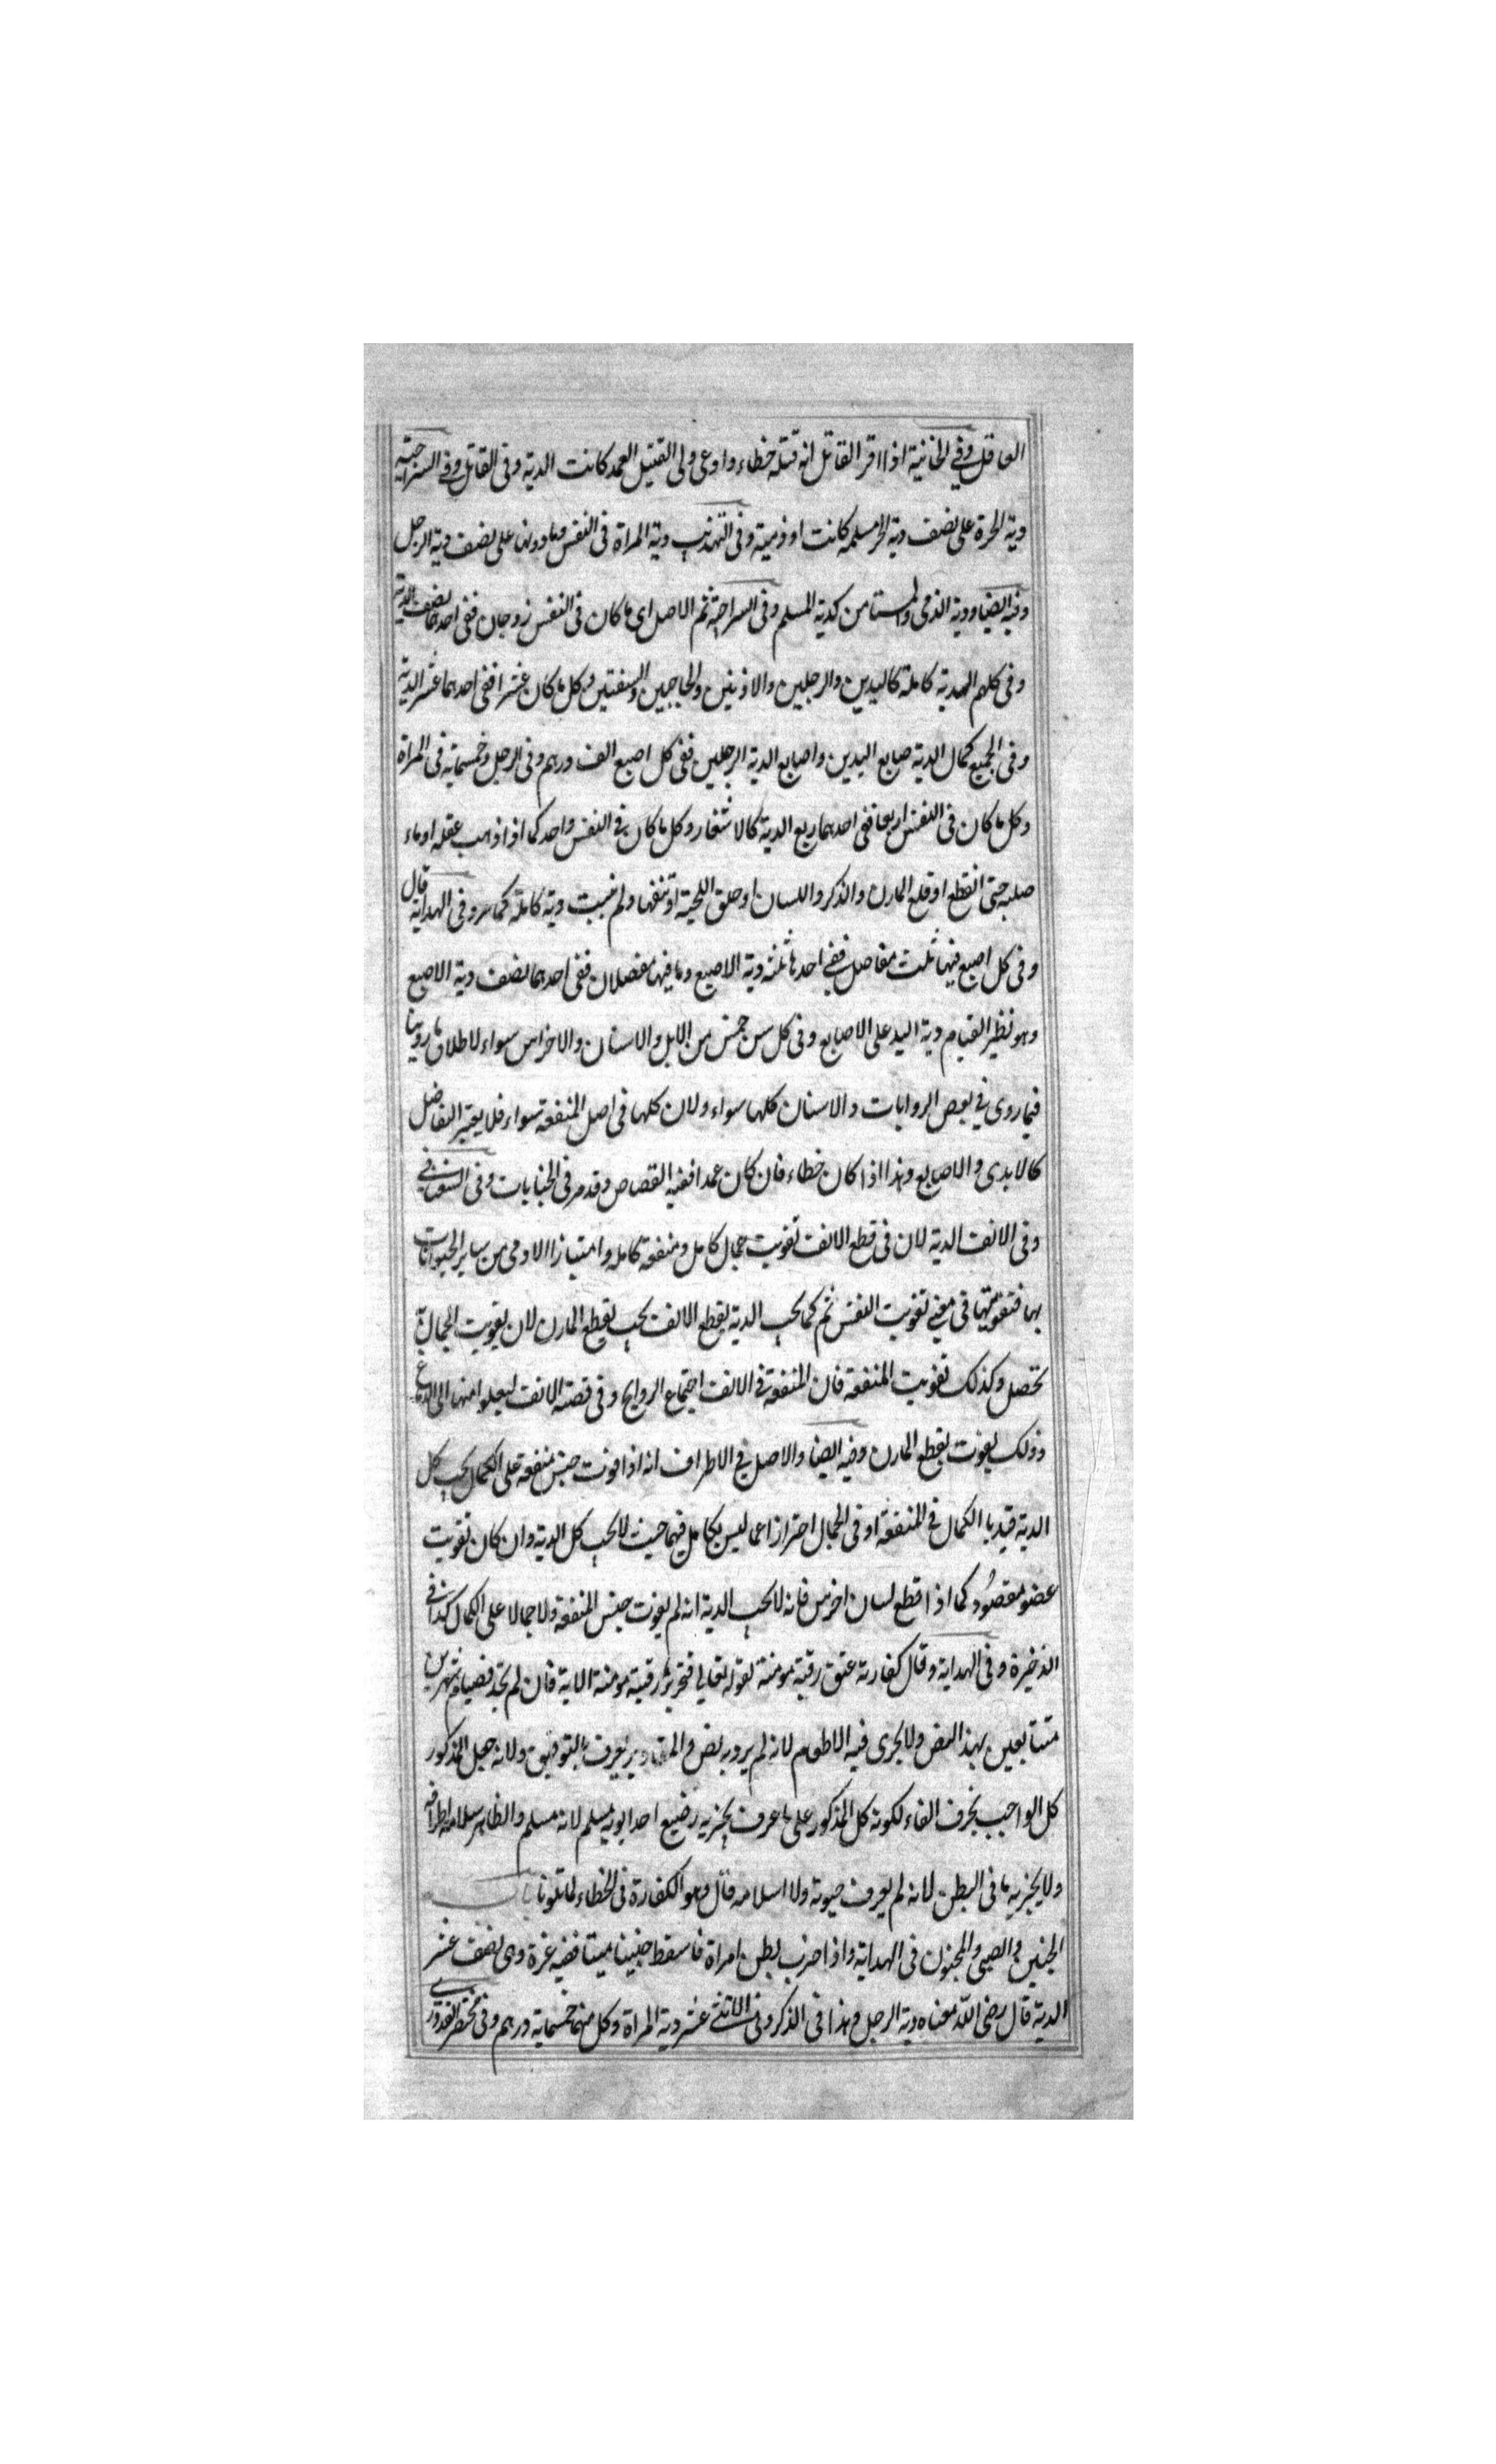 العاقل وفي الخانية اذا اقر القاتل انه قتله خطاء وادعى ولى القتيل العمد كانت الدية وفى القاتل وفى السراجية
دية الحرة على نصف دية الحر مسلمه كانت او ذمية وفى التهذيب دية المراة فى النفس وما دونها على نصف دية الرجل
وفيه ايضا ودية الذمى والمستامن كدية المسلم وفى السراجية ثم الاصل اى ما كان فى النفس زوجان ففى احدهما نصف الدية
وفى كلهم الهدية كاملة كاليدين والرجلين والاذنين والحاجبين والشفتين وكل ما كان عشرا ففى احدهما عشر الدية
وفى الجميع كمال الدية صابع اليدين واصابع الدية الرجلين ففى كل اصبع الف درهم وفى الرجل وخمسماية فى المراة
وكل ما كان فى النفس اربعا ففى احدهما ربع الدية كالاشفار وكل ما كان فى النفس واحد كما اذا ذهب عقله او ماء
صلبه حتى انقطع او قلع المارن والذكر واللسان او حلق اللحية او تنفها ولم نبت دية كاملة كما مر وفى الهداية قال
وفى كل اصبع فيها ثلث مفاصل ففى احدها ثلثه دية الاصبع وما فيها مفصلان ففى احدهما نصف دية الاصبع
وهو نظير القيام دية اليد على الاصابع وفى كل سن خمس من الابل والاسنان والاخراس سواء لاطلاق ما روينا
فيما روى فى بعض الروايات والاسنان كلها سواء ولان كلها فى اصل المنفعة سواء فلا يعتبر التفاضل
كالايدى والاصابع وهذا اذا كان خطاء فان كان عمدا ففيه القصاص وقد مر فى الجنايات وفى السغناقى
وفى الانف الدية لان فى قطع الانف تفويت جمال كامل ومنفعة كامله وامتياز الادمى من ساير الحيوانات
بها فتفويتها فى معنى تفويت النفس ثم كما يجب الدية بقطع الانف يجب بقطع المارن لان تفويت الجمال به
تحصل وكذلك تفويت المنفعة فان المنفعة فى الانف اجتماع الروايح وفى قصبة الانف ليعلوا منها الى الدماغ
وذلك يفوت بقطع المارن وفيه ايضا والاصل فى الاطراف انه اذا فوت جنس منفعة على الكمال يجب كل
الدية قيد با الكمال فى المنفعة او فى الجمال احترازا عما ليس بكامل فيهما حيث لا يجب كل الدية وان كان تفويت
عضو مقصود كما اذا قطع لسان اخرس فانه لا يجب الدية انه لم يفوت جنس المنفعة ولا جمالا على الكمال كذا فى
الذخيرة وفى الهداية وقال كفارته عتق رقبة مومنة لقوله تعالى فتحرير رقبة مومنة الاية فان لم يجد فصيام شهرين
متتابعين بهذا النص ولا يجرى فيه الاطعام لانه لم يرد به نص والمقادير يعرف بالتوفيق ولانه جعل المذكور
كل الواجب بحرف الفاء لكونه كل المذكور على ما عرف يجزيه رضيع احد ابويه مسلم لانه مسلم والظاهر سلامة اطرافه
ولا يجزيه ما فى البطن لانه لم يعرف حيوته ولا اسلامه قال وهو الكفارة فى الخطاء لما تلونا باب
الجنين والصبى والمجنون فى الهداية واذا ضرب بطن امراة فاسقط جنينا ميتا ففيه غرة وهى نصف عشر
الدية قال رضى الله معناه دية الرجل وهذا فى الذكر وفى الانثى عشر دية المراة وكل منهما خمسماية درهم وفى مختصر القدورى